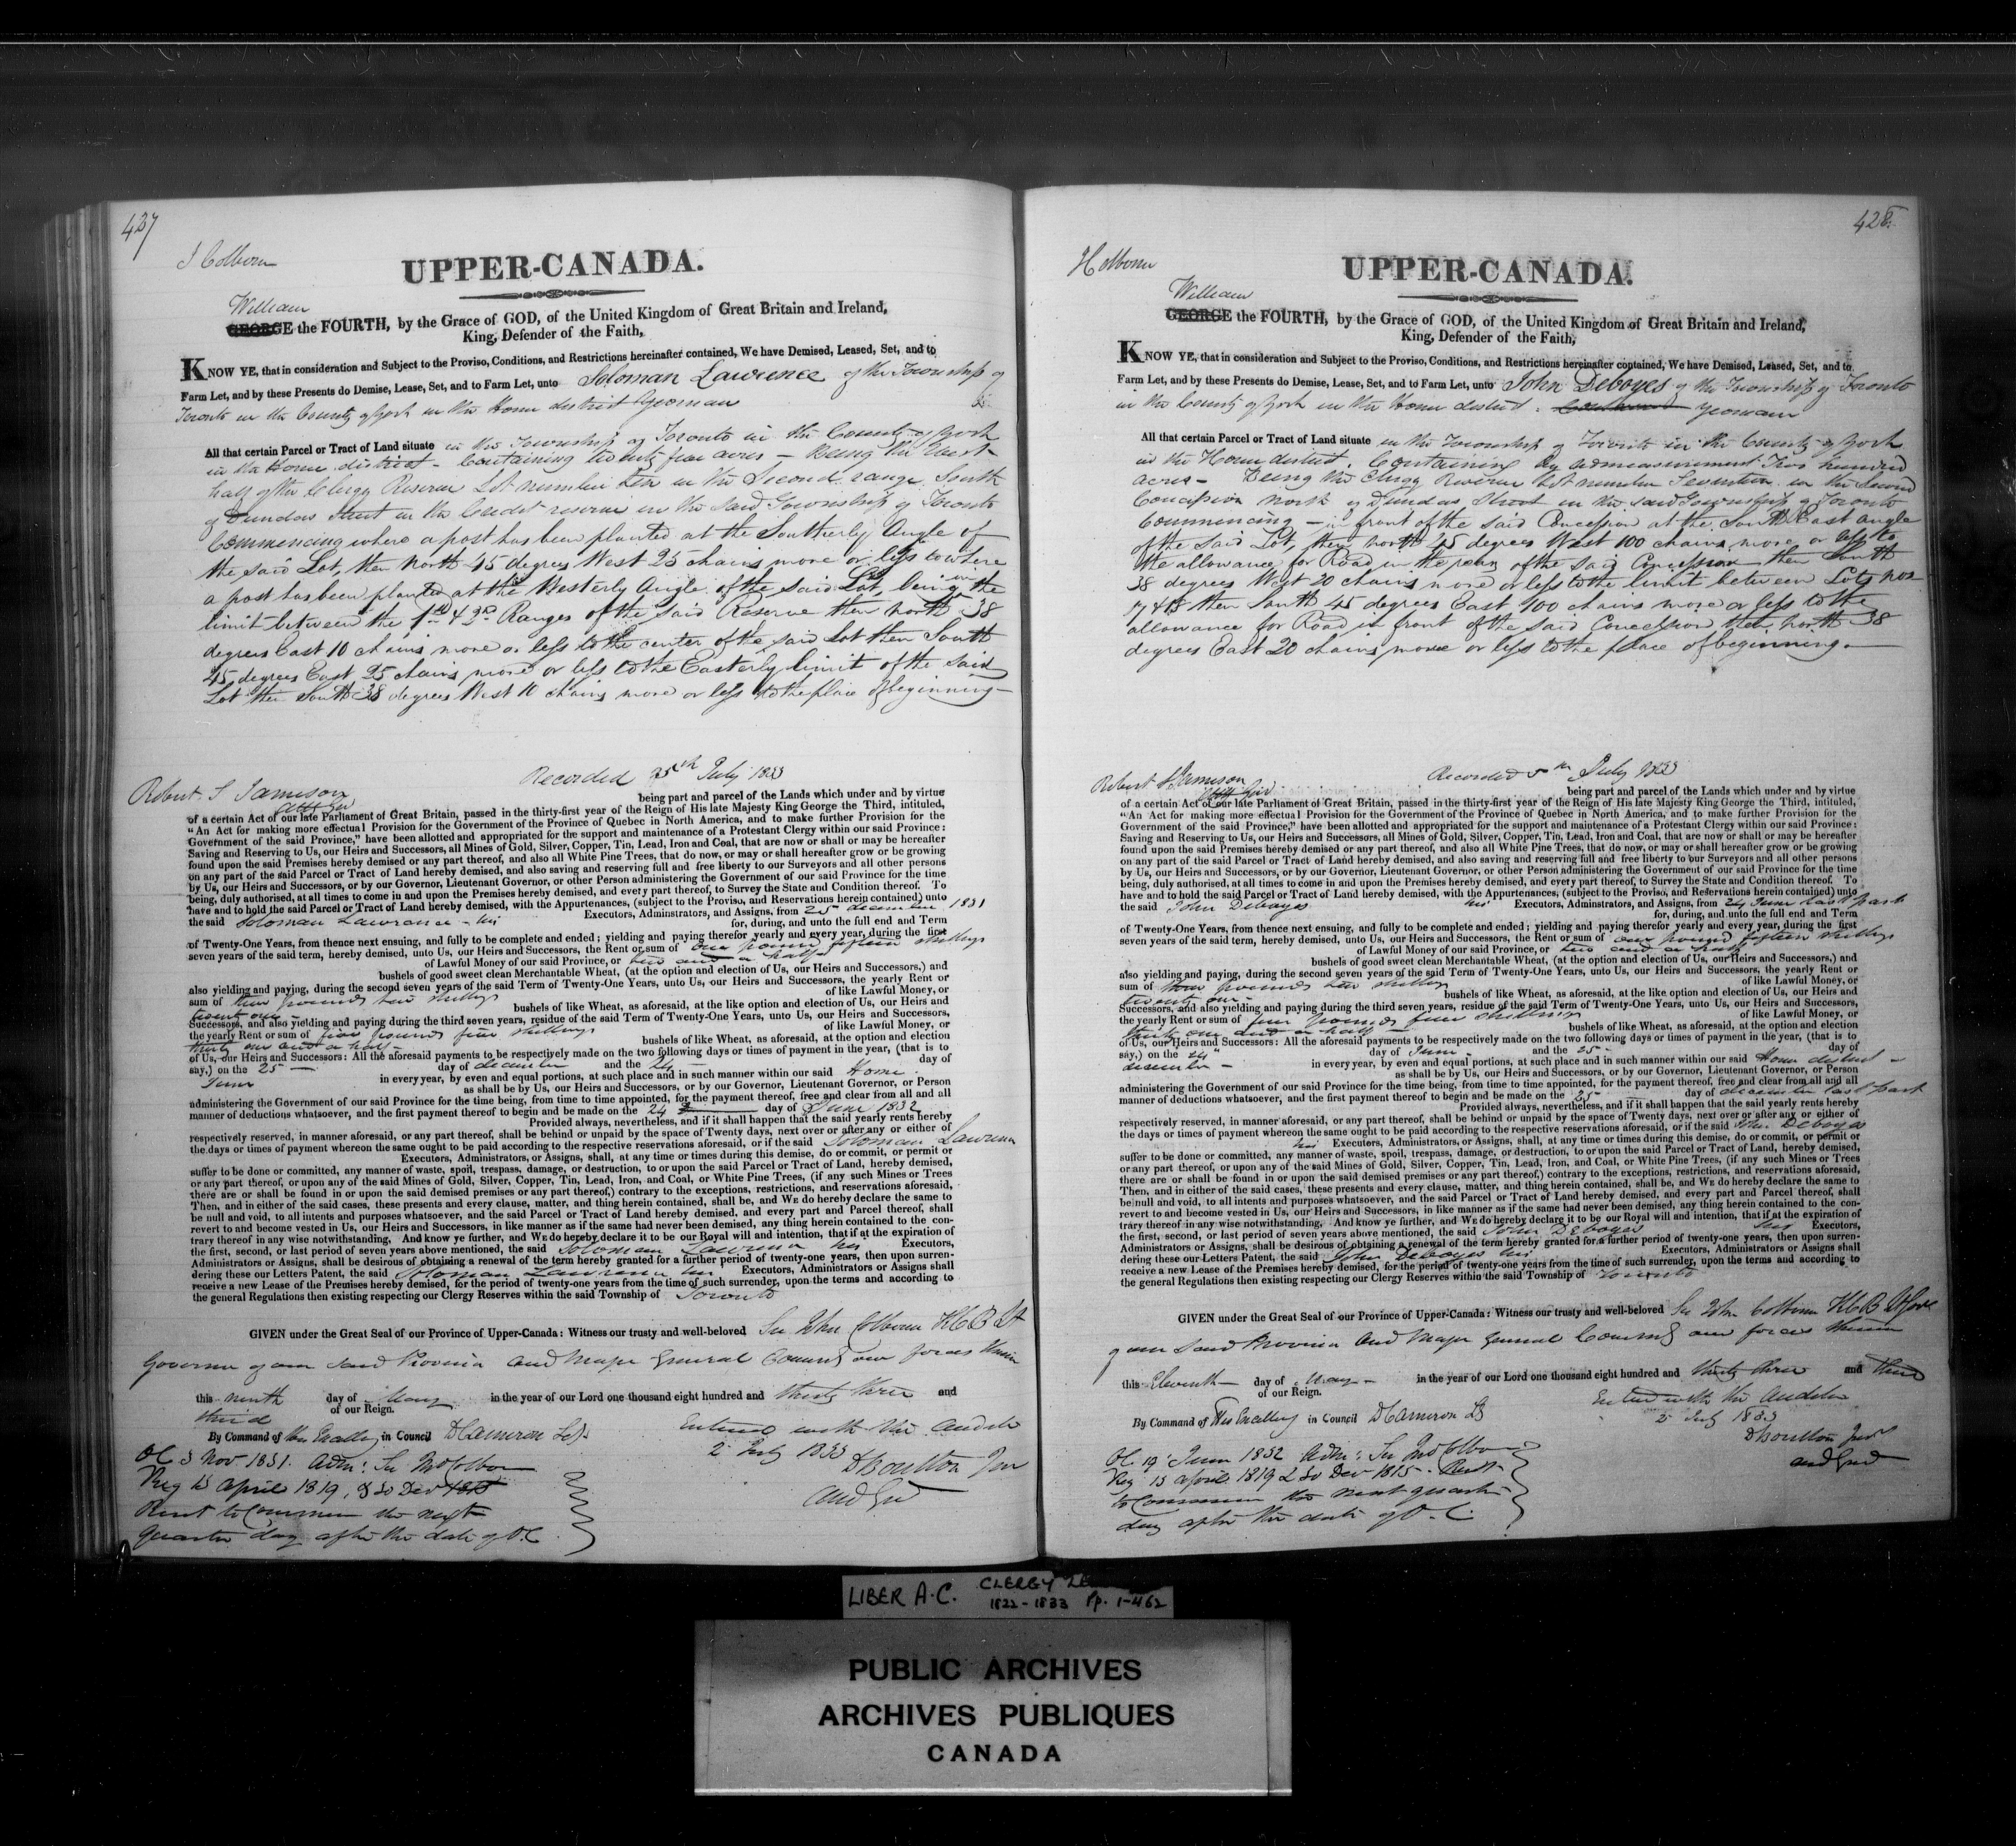 427
J Colborne
UPPER-CANADA.
William
GEORGE the FOURTH, by the Grace of GOD, of the United Kingdom of Great Britain and Ireland,
King, Defender of the Faith,
KNOW YE, that in consideration and Subject to the Proviso, Conditions, and Restrictions hereinafter contained, We have Demised, Leased, Set, and to
Farm Let, and by these Presents do Demise, Lease, Set, and to Farm Let, unto Soloman Lawrence of the Township of
Toronto in the County of York in the Home district Yeoman
All that certain Parcel or Tract of Land situate in the Township of Toronto in the County of York
in the Home district - Containing twenty five acres - Being the West
half of the Clergy Reserve Lot number ten in the Second range South
of Dundas Street in the Credit reserve in the said Township of Toronto
Commencing where a post has been planted at the Southerly Angle of
the said Lot, then North 45 degrees West 25 chains more or less to where
a post has been planted at the Westerly Angle of the said Lot, being in the
limit between the 1st & 2nd Ranges of the said Reserve then north 38
degrees East 10 chains more or less to the center of the said Lot then South
45 degrees East 25 chains more or less to the Easterly limit of the said
Lot then South 38 degrees West 10 chains more or less to the place of beginning
Recorded 25th July 1833
Robert S Jameson
Atty Gen
being part and parcel of the Lands which under and by virtue
of a certain Act of our late Parliament of Great Britain, passed in the thirty-first year of the Reign of His late Majesty King George the Third, intituled,
“An Act for making more effectual Provision for the Government of the Province of Quebec in North America, and to make further Provision for the
Government of the said Province,” have been allotted and appropriated for the support and maintenance of a Protestant Clergy within our said Province:
Saving and Reserving to Us, our Heirs and Successors, all Mines of Gold, Silver, Copper, Tin, Lead, Iron and Coal, that are now or shall or may be hereafter
found upon the said Premises hereby demised or any part thereof, and also all White Pine Trees, that do now, or may or shall hereafter grow or be growing
on any part of the said Parcel or Tract of Land hereby demised, and also saving and reserving full and free liberty to our Surveyors and all other persons
by Us, our Heirs and Successors, or by our Governor, Lieutenant Governor, or other Person administering the Government of our said Province for the time
being, duly authorised, at all times to come in and upon the Premises hereby demised, and every part thereof, to Survey the State and Condition thereof. To
have and to hold the said Parcel or Tract of Land hereby demised, with the Appurtenances, (subject to the Proviso, and Reservations herein contained) unto
the said Soloman Lawrance - his Executors, Adminstrators, and Assigns, from 25 december 1831
for, during, and unto the full end and Term
of Twenty-One Years, from thence next ensuing, and fully to be complete and ended; yielding and paying therefor yearly and every year, during the first
seven years of the said term, hereby demised, unto Us, our Heirs and Successors, the Rent or sum of one pound fifteen shillings
of Lawful Money of our said Province, or ten and a half
bushels of good sweet clean Merchantable Wheat, (at the option and election of Us, our Heirs and Successors,) and
also yielding and paying, during the second seven years of the said Term of Twenty-One Years, unto Us, our Heirs and Successors, the yearly Rent or
sum of three pounds ten shillings of like Lawful Money, or
twenty one - bushels of like Wheat, as aforesaid, at the like option and election of Us, our Heirs and
Successors, and also yielding and paying during the third seven years, residue of the said Term of Twenty-One Years, unto Us, our Heirs and Successors,
the yearly Rent or sum of five pounds five shillings of like Lawful Money, or
thirty one and a half - bushels of like Wheat, as aforesaid, at the option and election
of Us, our Heirs and Successors: All the aforesaid payments to be respectively made on the two following days or times of payment in the year, (that is to
say,) on the 25 - day of december and the 24 - day of
June in every year, by even and equal portions, at such place and in such manner within our said Home
as shall be by Us, our Heirs and Successors, or by our Governor, Lieutenant Governor, or Person
administering the Government of our said Province for the time being, from time to time appointed, for the payment thereof, free and clear from all and all
manner of deductions whatsoever, and the first payment thereof to begin and be made on the 24 day of June 1832
Provided always, nevertheless, and if it shall happen that the said yearly rents hereby
respectively reserved, in manner aforesaid, or any part thereof, shall be behind or unpaid by the space of Twenty days, next over or after any or either of
the days or times of payment whereon the same ought to be paid according to the respective reservations aforesaid, or if the said Soloman Lawrence
Executors, Administrators, or Assigns, shall, at any time or times during this demise, do or commit, or permit or
suffer to be done or committed, any manner of waste, spoil, trespass, damage, or destruction, to or upon the said Parcel or Tract of Land, hereby demised,
or any part thereof, or upon any of the said Mines of Gold, Silver, Copper, Tin, Lead, Iron, and Coal, or White Pine Trees, (if any such Mines or Trees
there are or shall be found in or upon the said demised premises or any part thereof,) contrary to the exceptions, restrictions, and reservations aforesaid,
Then, and in either of the said cases, these presents and every clause, matter, and thing herein contained, shall be, and WE do hereby declare the same to
be null and void, to all intents and purposes whatsoever, and the said Parcel or Tract of Land hereby demised, and every part and Parcel thereof, shall
revert to and become vested in Us, our Heirs and Successors, in like manner as if the same had never been demised, any thing herein contained to the con-
trary thereof in any wise notwithstanding. And know ye further, and WE do hereby declare it to be our Royal will and intention, that if at the expiration of
the first, second, or last period of seven years above mentioned, the said Soloman Lawrence his Executors,
Administrators or Assigns, shall be desirous of obtaining a renewal of the term hereby granted for a further period of twenty-one years, then upon surren-
dering these our Letters Patent, the said Soloman Lawrence his Executors, Administrators or Assigns shall
receive a new Lease of the Premises hereby demised, for the period of twenty-one years from the time of such surrender, upon the terms and according to
the general Regulations then existing respecting our Clergy Reserves within the said Township of Toronto
GIVEN under the Great Seal of our Province of Upper-Canada: Witness our trusty and well-beloved Sir John Colborne KCB Lt
Governor of our said Province and Major General Commg our forces therein
this ninth day of May in the year of our Lord one thousand eight hundred and thirty three and
third of our Reign.
By Command of His Excellency in Council DCameron Sey
Entered with the Auditor
2 July 1833
DBoulton Jun
Aud Genl
OC 3 Nov 1831. Adm: Sir Jno Colborne
Reg 15 april 1819, & 30 Dev 1815
Rent to Commence the next
quarter day after the date of O.C.
428
J Colborne
UPPER-CANADA.
William
GEORGE the FOURTH, by the Grace of GOD, of the United Kingdom of Great Britain and Ireland,
King, Defender of the Faith,
KNOW YE, that in consideration and Subject to the Proviso, Conditions, and Restrictions hereinafter contained, We have Demised, Leased, Set, and to
Farm Let, and by these Presents do Demise, Lease, Set, and to Farm Let, unto John Deboyes of the Township of Toronto
in the County of York in the Home district. Yeoman
All that certain Parcel or Tract of Land situate in the Township of Toronto in the County of York
in the Home district. Containing by admeasurement Two hundred
acres - Being the Clergy Reserve Lot number Seventeen in the Second
Concession North of Dundas Street in the said Township of Toronto
Commencing - in front of the said Concession at the South East angle
of the said Lot, then north 45 degrees West 100 chains more or less to
the allowance for Road in the rear of the said Concession then South
38 degrees West 20 chains more or less to the limit between Lots nos
17 & 18 then South 45 degrees East 100 chains more or less to the
allowance for Road in front of the said Concession then north 38
degrees East 20 chains more or less to the place of beginning.
Recorded 5th July 1833
Robert S Jameson
Atty Gen
being part and parcel of the Lands which under and by virtue
of a certain Act of our late Parliament of Great Britain, passed in the thirty-first year of the Reign of His late Majesty King George the Third, intituled,
“An Act for making more effectual Provision for the Government of the Province of Quebec in North America, and to make further Provision for the
Government of the said Province,” have been allotted and appropriated for the support and maintenance of a Protestant Clergy within our said Province:
Saving and Reserving to Us, our Heirs and Successors, all Mines of Gold, Silver, Copper, Tin, Lead, Iron and Coal, that are now or shall or may be hereafter
found upon the said Premises hereby demised or any part thereof, and also all White Pine Trees, that do now, or may or shall hereafter grow or be growing
on any part of the said Parcel or Tract of Land hereby demised, and also saving and reserving full and free liberty to our Surveyors and all other persons
by Us, our Heirs and Successors, or by our Governor, Lieutenant Governor, or other Person administering the Government of our said Province for the time
being, duly authorised, at all times to come in and upon the Premises hereby demised, and every part thereof, to Survey the State and Condition thereof. To
have and to hold the said Parcel or Tract of Land hereby demised, with the Appurtenances, (subject to the Proviso, and Reservations herein contained) unto
the said John Deboyes his Executors, Adminstrators, and Assigns, from 24 June last past
for, during, and unto the full end and Term
of Twenty-One Years, from thence next ensuing, and fully to be complete and ended; yielding and paying therefor yearly and every year, during the first
seven years of the said term, hereby demised, unto Us, our Heirs and Successors, the Rent or sum of one pound fifteen shillings
of Lawful Money of our said Province, or ten and a half
bushels of good sweet clean Merchantable Wheat, (at the option and election of Us, our Heirs and Successors,) and
also yielding and paying, during the second seven years of the said Term of Twenty-One Years, unto Us, our Heirs and Successors, the yearly Rent or
sum of three pounds ten shillings of like Lawful Money, or
twenty one - bushels of like Wheat, as aforesaid, at the like option and election of Us, our Heirs and
Successors, and also yielding and paying during the third seven years, residue of the said Term of Twenty-One Years, unto Us, our Heirs and Successors,
the yearly Rent or sum of five pounds five shillings of like Lawful Money, or
thirty one and a half bushels of like Wheat, as aforesaid, at the option and election
of Us, our Heirs and Successors: All the aforesaid payments to be respectively made on the two following days or times of payment in the year, (that is to
say,) on the 24 day of June - and the 25 - day of
december - in every year, by even and equal portions, at such place and in such manner within our said Home district -
as shall be by Us, our Heirs and Successors, or by our Governor, Lieutenant Governor, or Person
administering the Government of our said Province for the time being, from time to time appointed, for the payment thereof, free and clear from all and all
manner of deductions whatsoever, and the first payment thereof to begin and be made on the 25 day of december last past
Provided always, nevertheless, and if it shall happen that the said yearly rents hereby
respectively reserved, in manner aforesaid, or any part thereof, shall be behind or unpaid by the space of Twenty days, next over or after any or either of
the days or times of payment whereon the same ought to be paid according to the respective reservations aforesaid, or if the said John Deboyes
his Executors, Administrators or Assigns, shall, at any time or times during this demise, do or commit, or permit or
suffer to be done or committed, any manner of waste, spoil, trespass, damage, or destruction, to or upon the said Parcel or Tract of Land, hereby demised,
or any part thereof, or upon any of the said Mines of Gold, Silver, Copper, Tin, Lead, Iron, and Coal, or White Pine Trees, (if any such Mines or Trees
there are or shall be found in or upon the said demised premises or any part thereof,) contrary to the exceptions, restrictions, and reservations aforesaid,
Then, and in either of the said cases, these presents and every clause, matter, and thing herein contained, shall be, and WE do hereby declare the same to
be null and void, to all intents and purposes whatsoever, and the said Parcel or Tract of Land hereby demised, and every part and Parcel thereof, shall
revert to and become vested in Us, our Heirs and Successors, in like manner as if the same had never been demised, any thing herein contained to the con-
trary thereof in any wise notwithstanding. And know ye further, and WE do hereby declare it to be our Royal will and intention, that if at the expiration of
the first, second, or last period of seven years above mentioned, the said John Deboyes his Executors,
Administrators or Assigns, shall be desirous of obtaining a renewal of the term hereby granted for a further period of twenty-one years, then upon surren-
dering these our Letters Patent, the said John Deboyes his Executors, Administrators or Assigns shall
receive a new Lease of the Premises hereby demised, for the period of twenty-one years from the time of such surrender, upon the terms and according to
the general Regulations then existing respecting our Clergy Reserves within the said Township of Toronto
GIVEN under the Great Seal of our Province of Upper-Canada: Witness our trusty and well-beloved Sir John Colborne KCB Lt Gov
of our said Province and Major General Commg our forces therein
this Eleventh day of May - in the year of our Lord one thousand eight hundred and thirty three and third
of our Reign.
By Command of His Excellency in Council DCameron Sey
Entered with the Auditor
2 July 1833
DBoulton Junr
Aud Genl
OC 19 June 1832 Adm: Sir Jno Colborne
Reg 15 april 1819 & 30 Dev 1815 - Rent
to Commence the next quarter
day after the date of O.C.
LIBER A.C. CLERGY
1822-1833 Pp. 1-462
PUBLIC ARCHIVES
ARCHIVES PUBLIQUES
CANADA